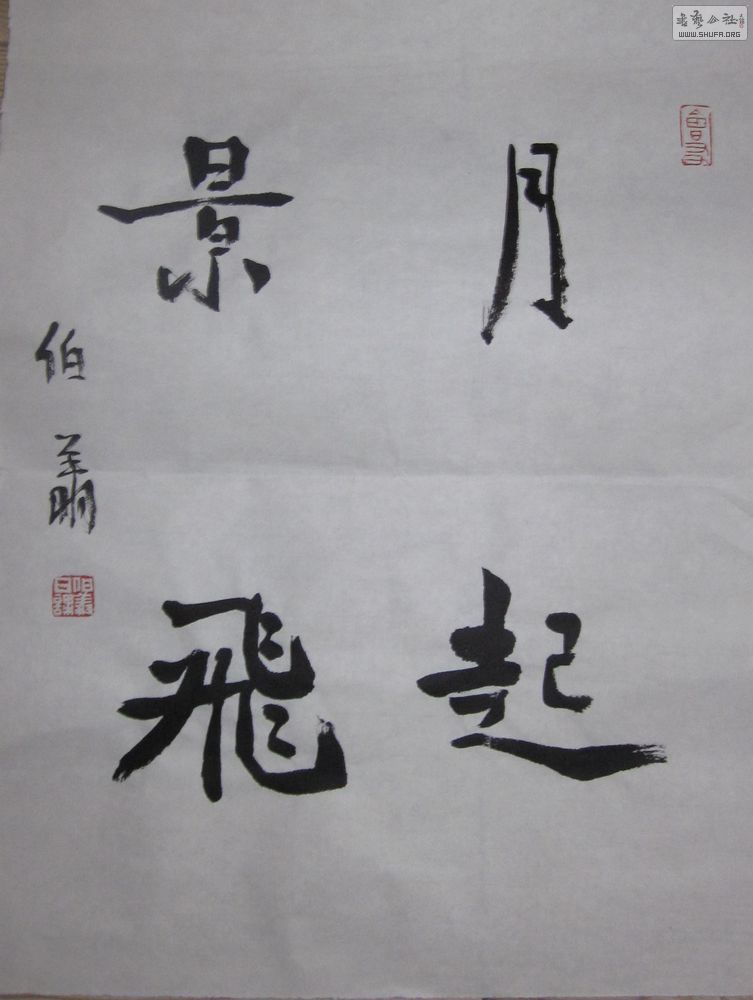 月起
景飛
伯翦
書藝公社
WWW.SHUFA.ORG